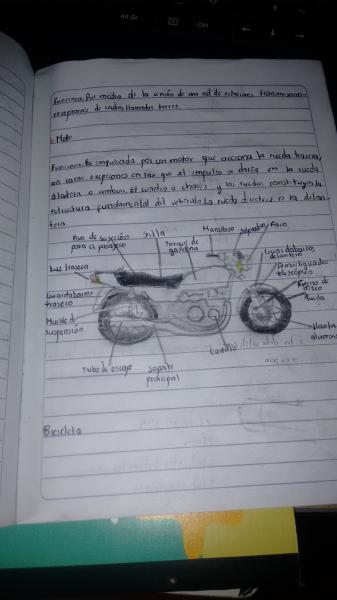 Funciona: Por medio de la unión de una red de estaciones transmisoras-
receptoras de ondas, llamadas torres.
Moto
Funciona: Es impulsada por un motor que acciona la rueda trasera,
en casos excepciones en los que el impulso se daría en la rueda
delantera o ambos. El cuadro o chasis y las ruedas constituyen la
estructura fundamental del vehículo. La rueda directriz es la delan-
tera.
Asa de sujeción
para el pasajero
Silla
Tanque de
gasolina
Manubrio
Faro
Luz trasera
Guardabarros
delantero
Amortiguador
telescópico
Guardabarros
trasero
Freno de
disco
Rueda
Muelle de
suspensión
Llanta
Tubo de escape
Soporte
principal
Cuadro
Bicicleta